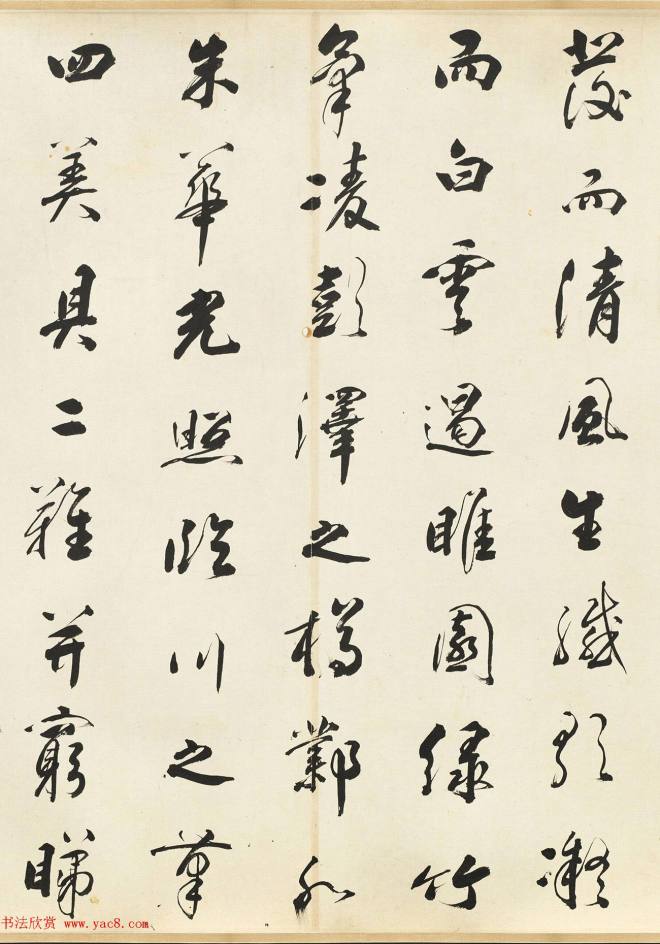 發而清風生纖歌凝
而白雲遏睢園綠竹
氣凌彭澤之樽鄴水
朱華光照臨川之筆
四美具二難并窮睇
书法欣赏 www.yac8.com